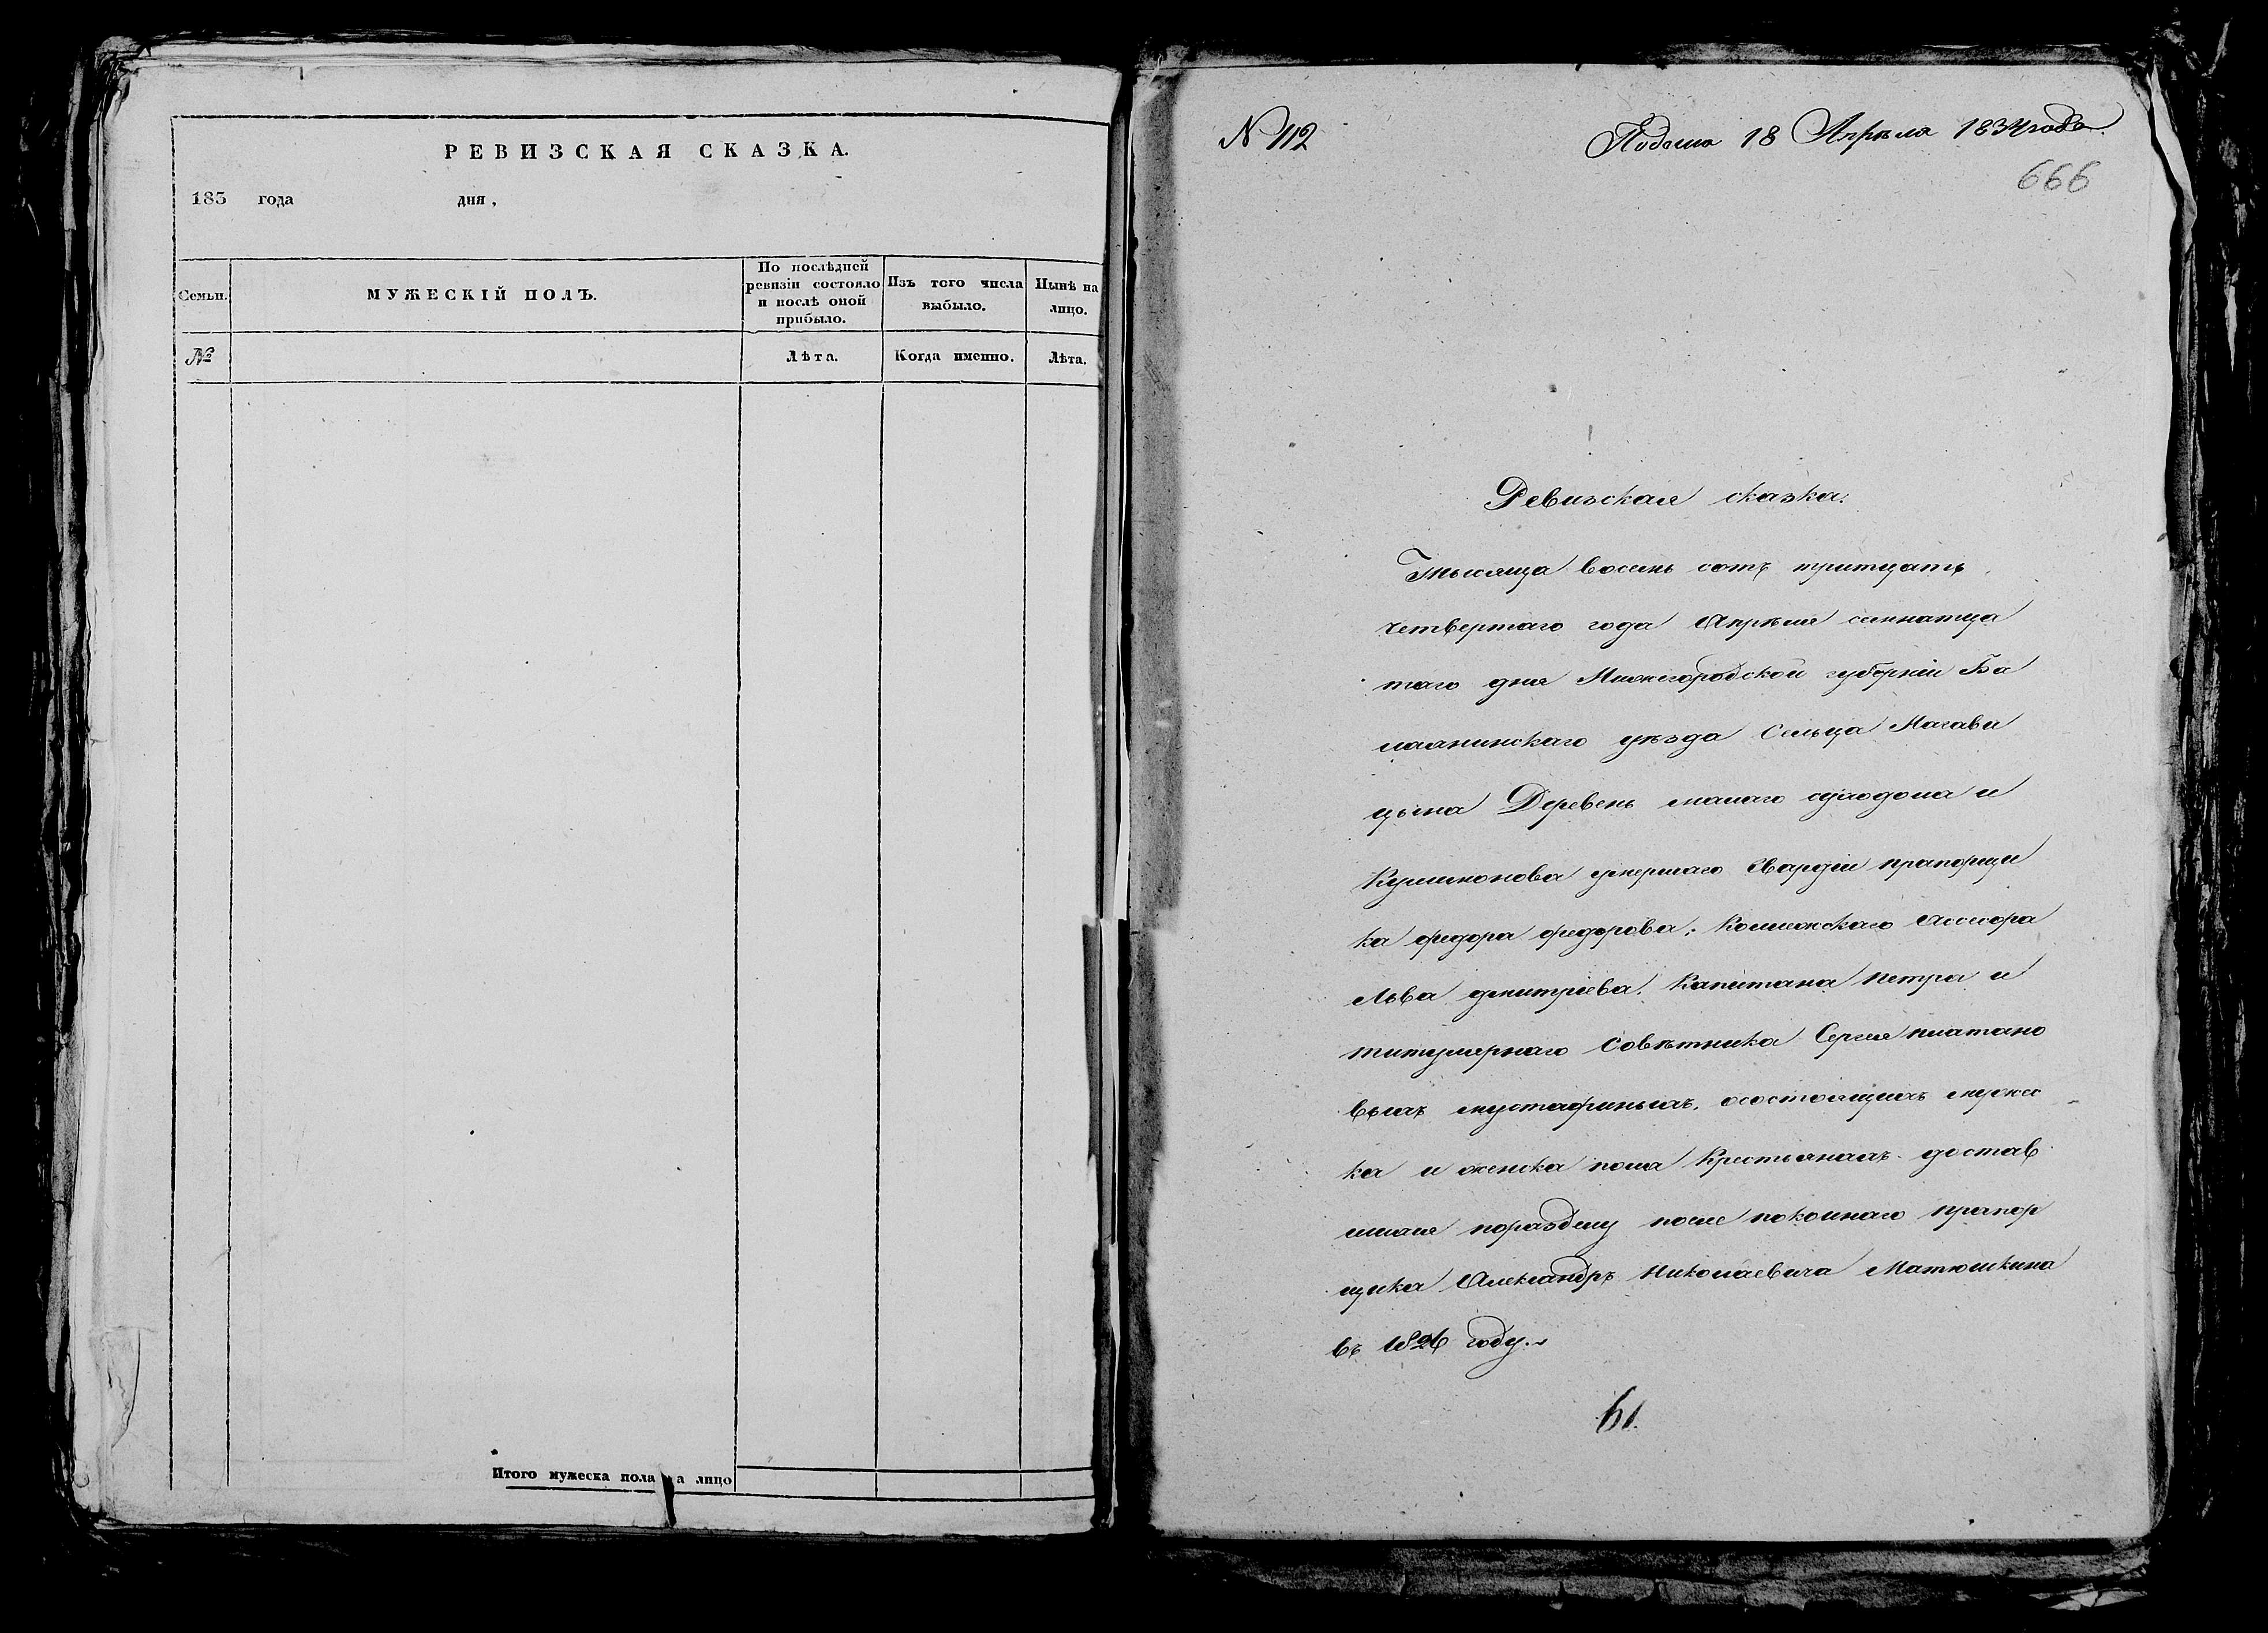 РЕВИЗСКАЯ СКАЗКА.
183 года дня,
Семьи.
МУЖЕСКІЙ ПОЛЪ.
По послѣдней
ревизіи состояло
и послѣ оной
прибыло.
Изъ того числа
выбыло.
Нынѣ на
лицо.
№
Лѣта.
Когда именно.
Лѣта.
Итого мужеска пола на лицо
N 112
Подана 18 Апрѣля 1834 года.
666
Ревизская сказка.
Тысяща восемь сотъ тритцать
четвертаго года Апрѣля семнатца
таго дня Нижегородской губерніи Ба
лахнинскаго уѣзда Сельца Магави
цына Деревень малаго суходола и
умершаго Гвардіи прапорщи
ка федора федорова, Колежскаго Ассесора
Льва дмитріева, Капитана петра и
титулярнаго Совѣтника Сергея платано
выхъ мустафиныхъ, осостоящихъ мужес
ка и женска пола Крестьянахъ достав
шихся поразделу после покоинаго прапор
щика Александръ Николаевича Матюшкина
въ 1826 году.
61.